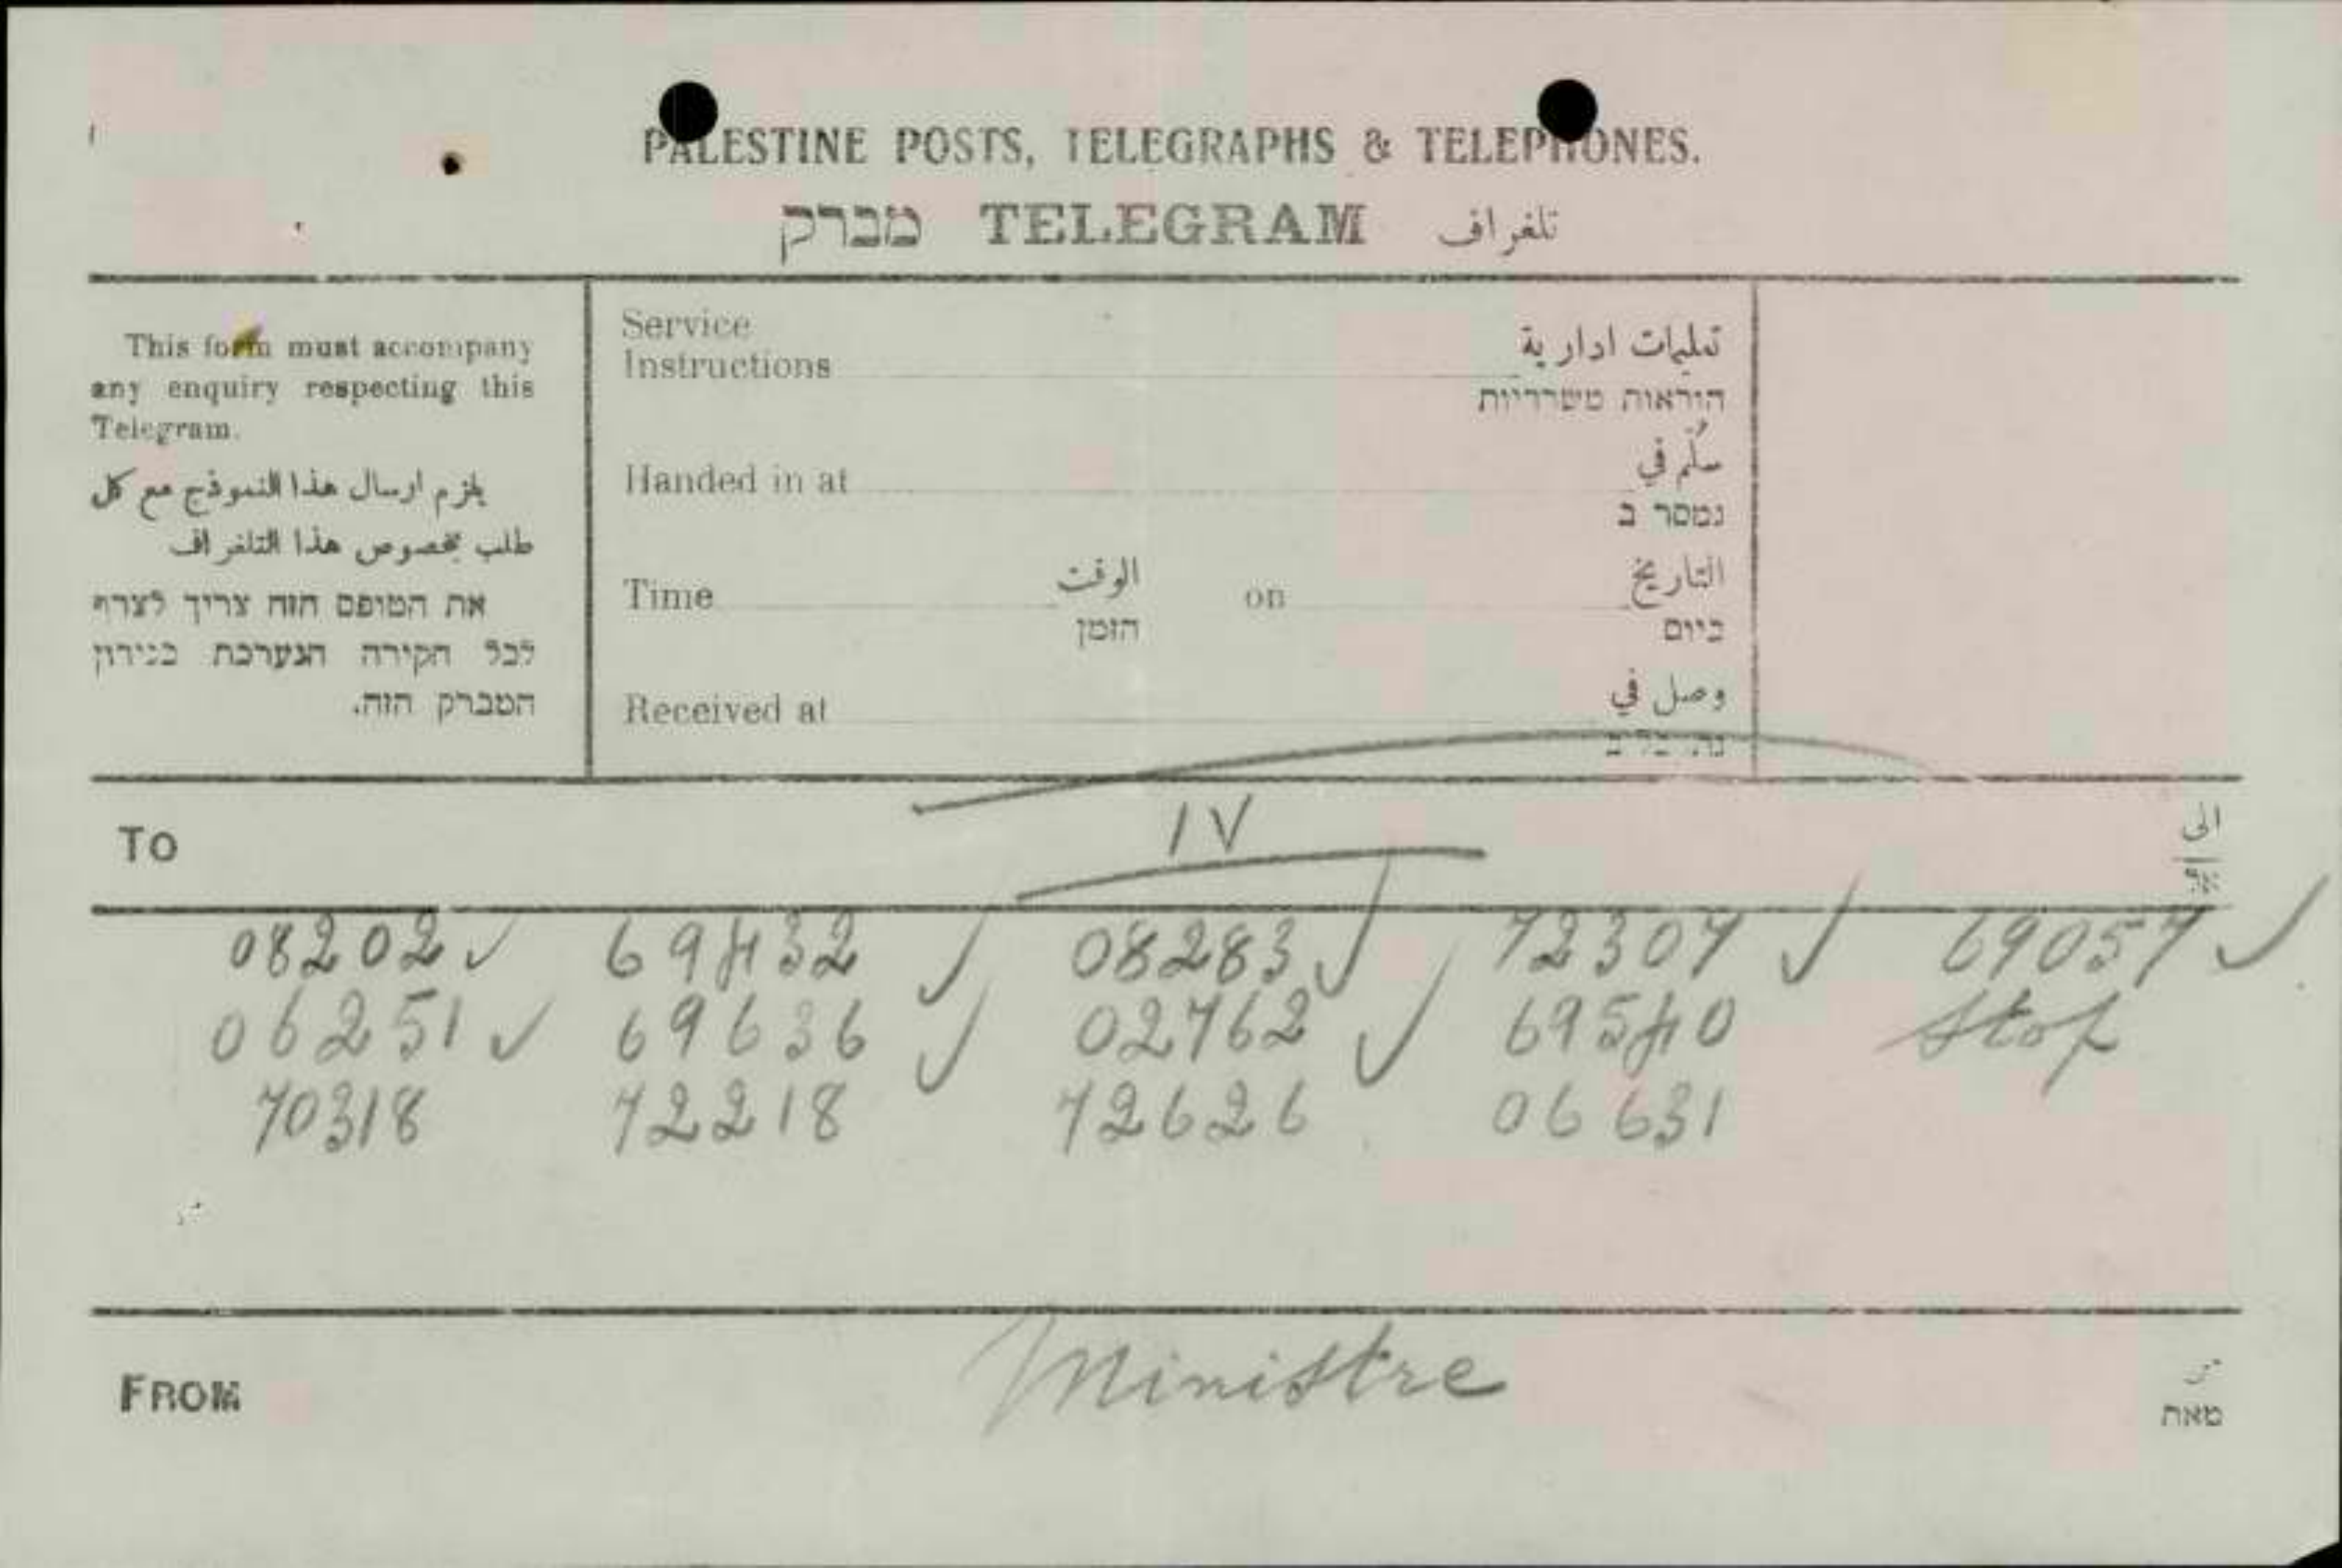 PALESTINE POSTS, TELEGRAPHS & TELEPHONES.
מברק TELEGRAM تلغراف
This form must accompany
any enquiry respecting this
Telegram.
يلزم ارسال هذا النموذج مع كل
طلب بخصوص هذا التلغراف
את הטופס הזה צריך לצרף
לכל חקירה הנערכת בנידון
המברק הזה.
Service
Instructions تعليمات ادارية
הוראות משרדיות
Handed in at سلّم في
נמסר ב
Time الوقت on التاريخ
הזמן ביום
Received at وصل في
To ١٧ الى
08202 ✓ 69432 ✓ 08283 ✓ 72307 ✓ 69057 ✓
06251 ✓ 69636 ✓ 02762 ✓ 69540 stop
70318 72218 72626 06631
FROM Ministre
מאת